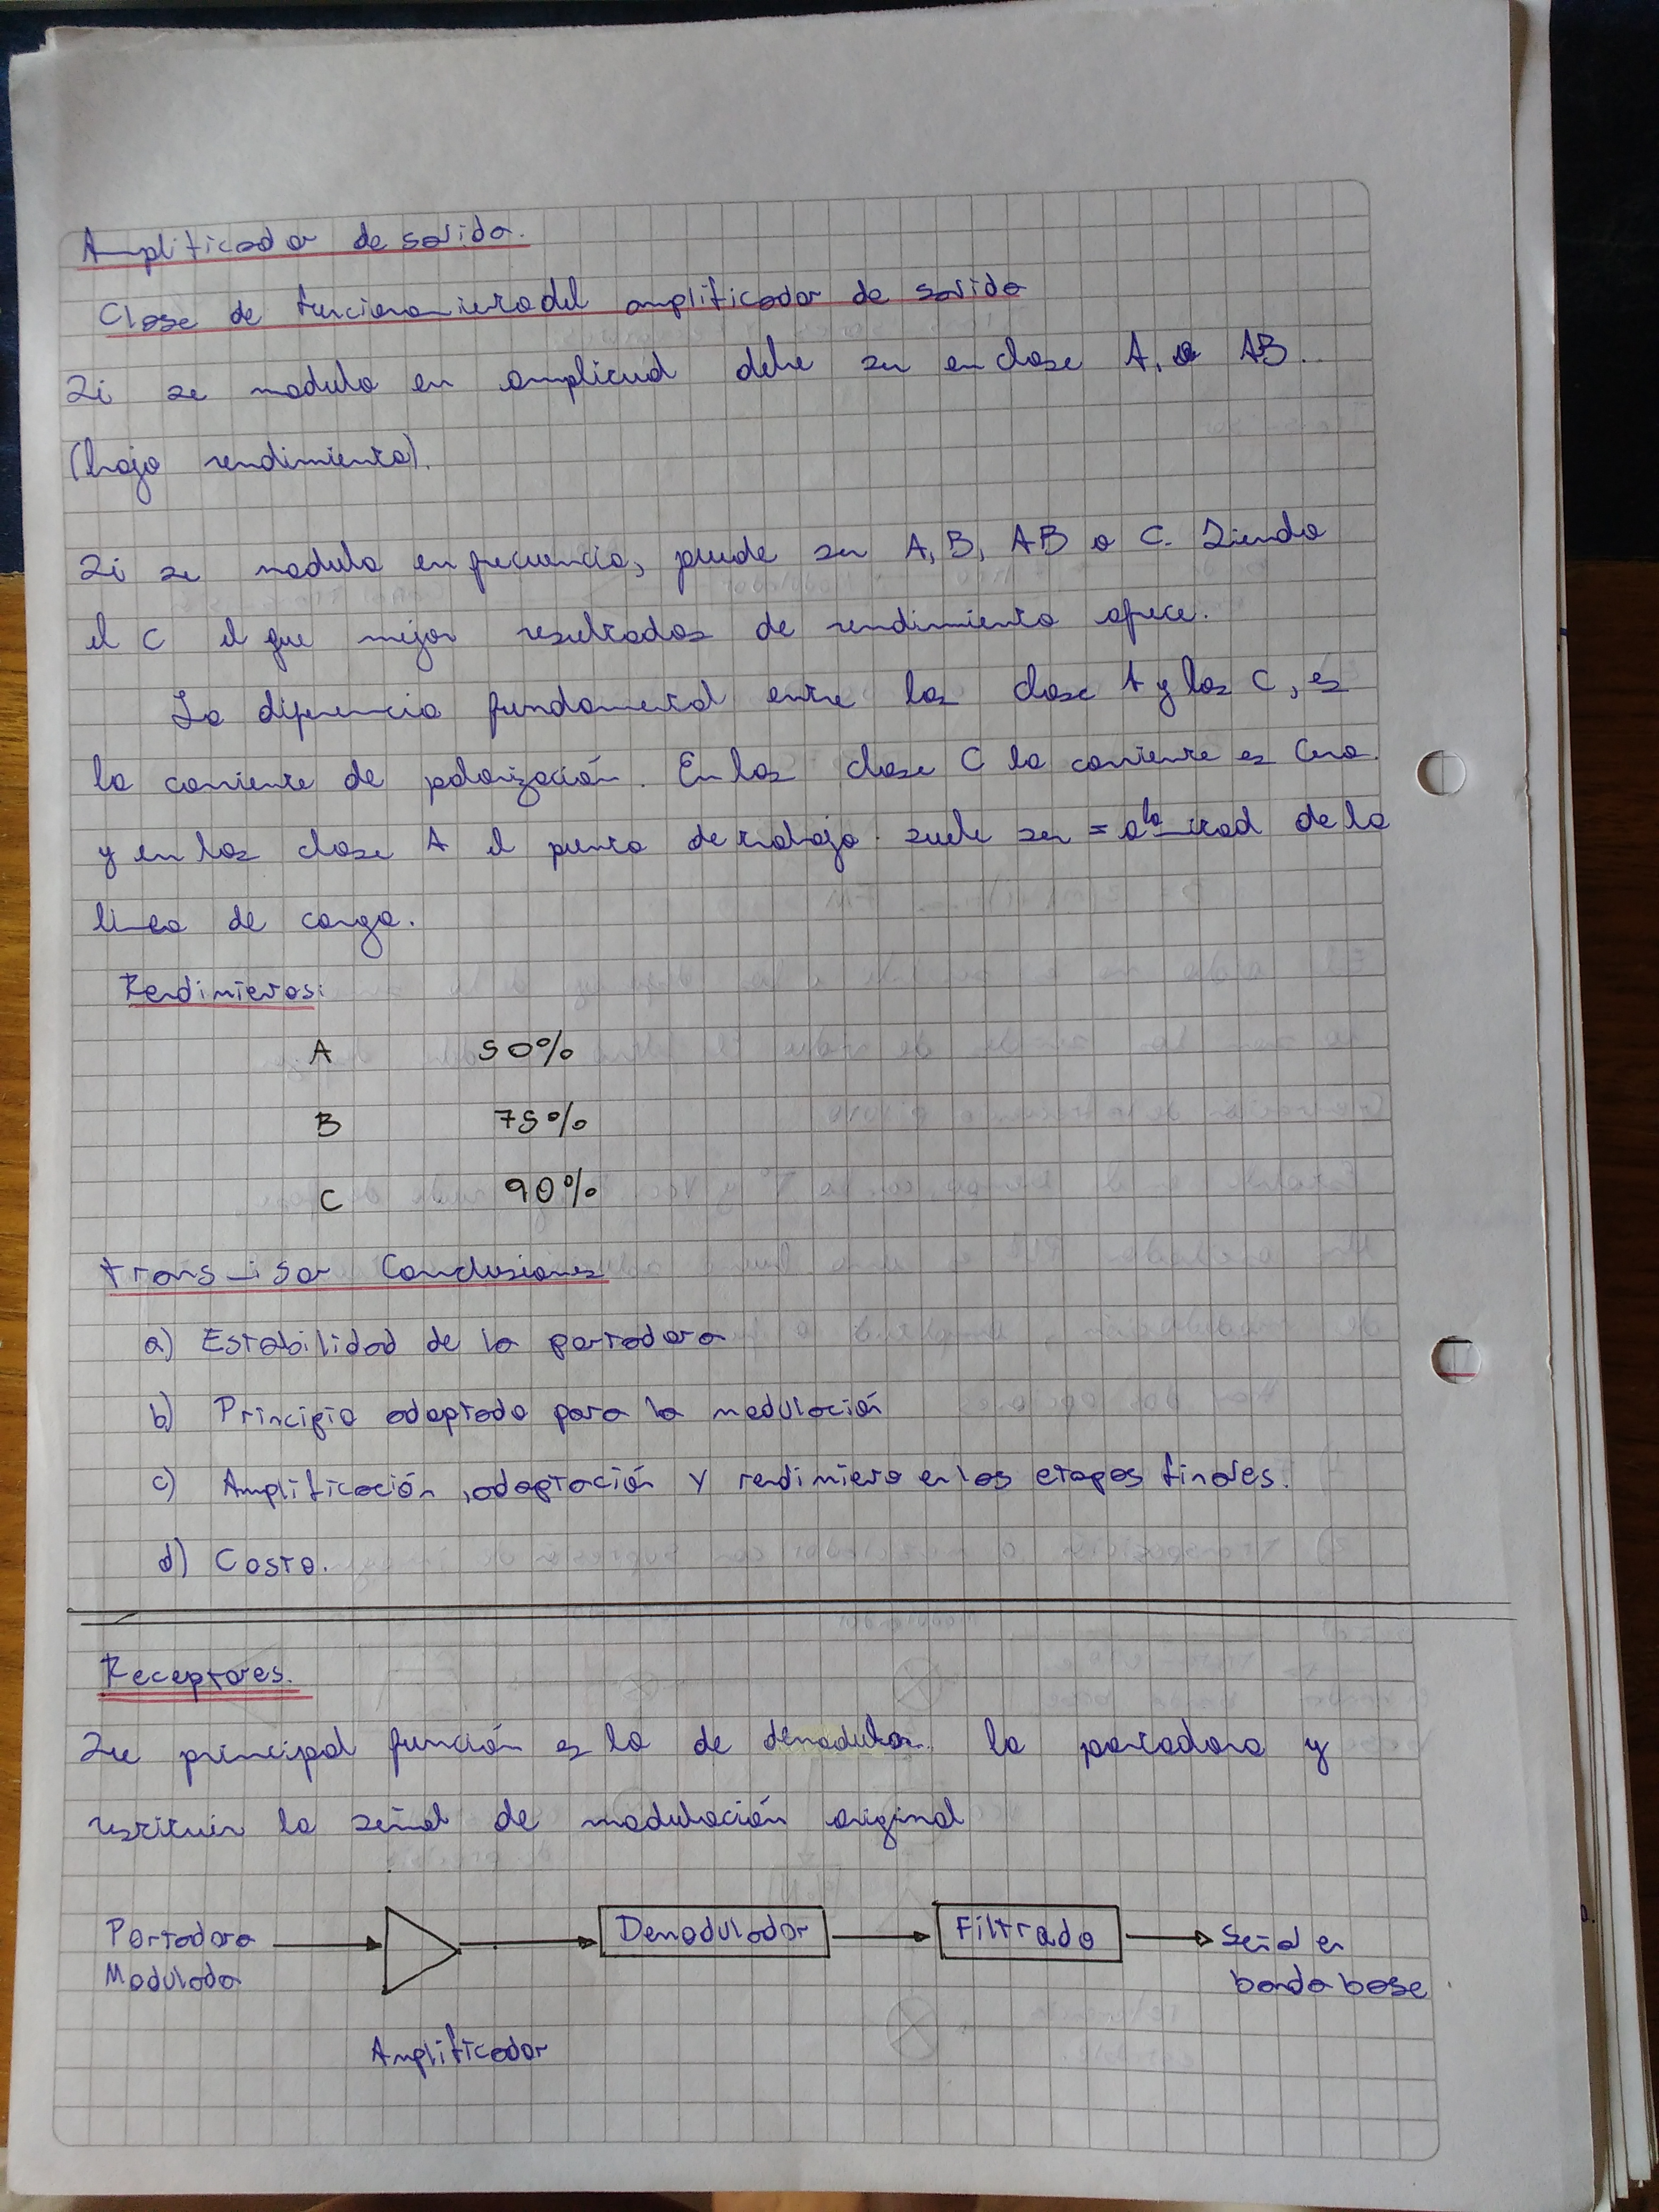 Amplificador de salida.
Clase de funcionamiento del amplificador de salida
Si se modula en amplicud debe ser en clase A, o AB.
(bajo rendimiento).
Si se modula en frecuencia, puede ser A, B, AB o C. Siendo
el C el que mejor resultados de rendimiento ofrece.
La diferencia fundamental entre los clase A y los C, es
la corriente de polarización. En los clase C la corriente es Cero.
y en los clase A el punto de trabajo. suele ser = a la mitad de la
linea de carga.
Rendimietos:
A 50%
B 75%
C 90%
transmisor Conclusiones
a) Estabilidad de la portadora
b) Principio adoptado para la modulación
c) Amplificación, adaptación y rendimieto en los etapas finales.
d) Costo.
Receptores.
Su principal función es la de demodular la portadora y
restituir la señal de modulación original
Portadora
Modulada
Demodulador
Filtrado
Señal en
banda base
Amplificador